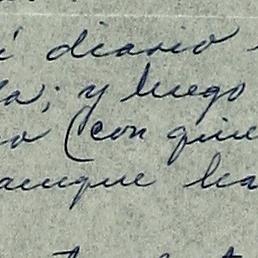 í diario
la; y luego
o (con quie
aunque ha